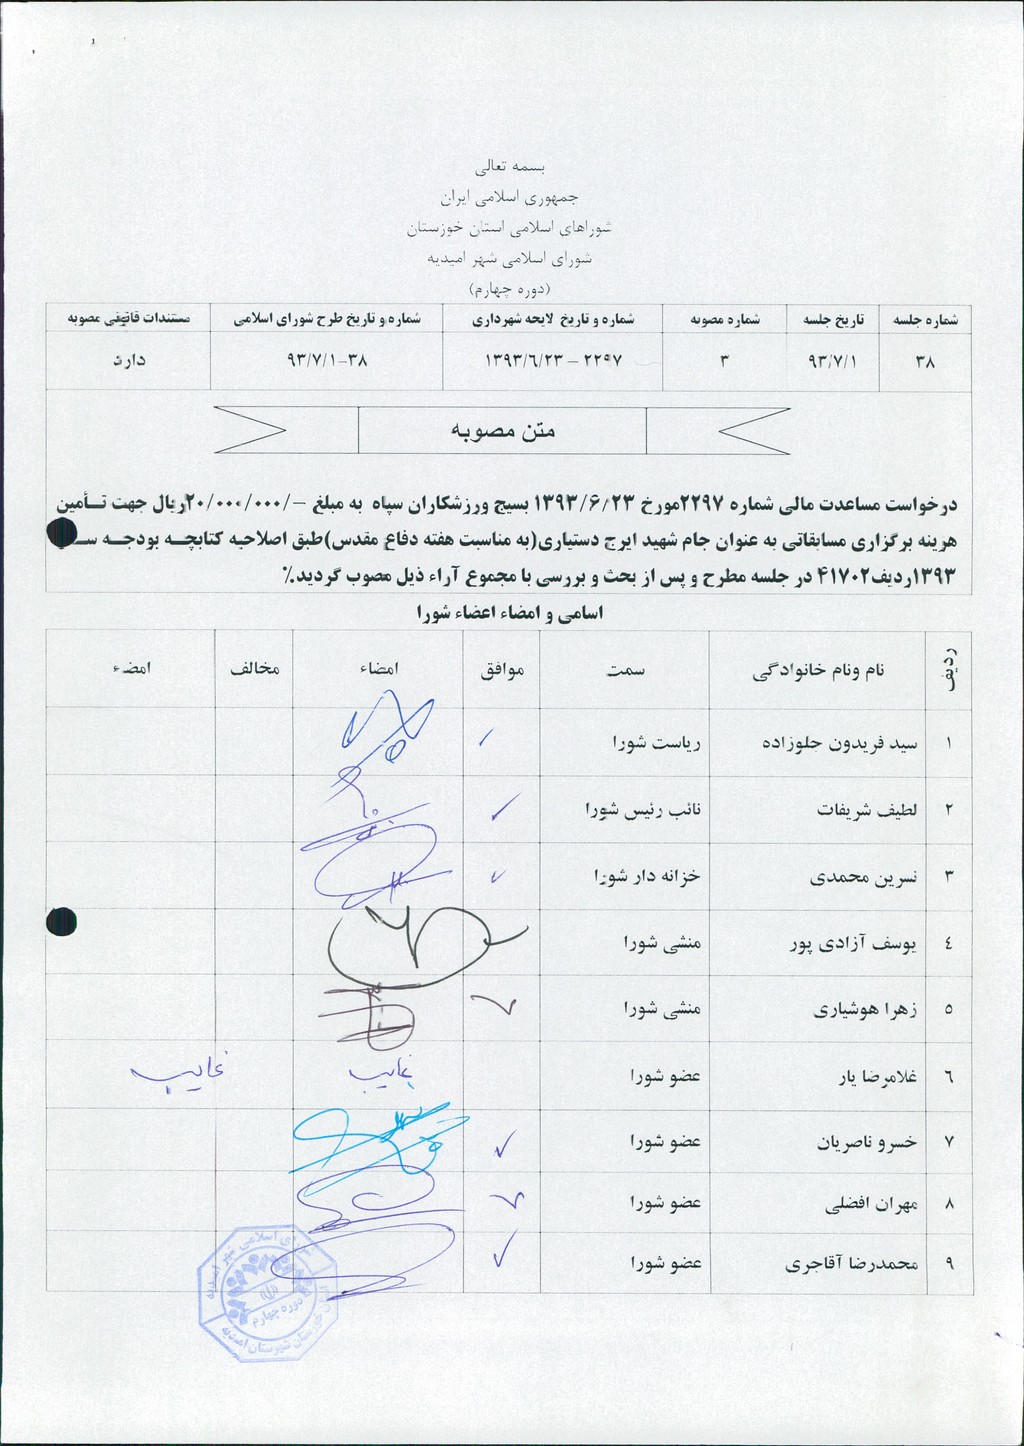 بسمه تعالی
جمهوری اسلامی ایران
شوراهای اسلامی استان خوزستان
شورای اسلامی شهر امیدیه
(دوره چهارم)
شماره جلسه تاریخ جلسه شماره مصوبه شماره و تاریخ لایحه شهرداری شماره و تاریخ طرح شورای اسلامی مستندات قانونی مصوبه
۳۸ ۹۳/۷/۱ ۳ ۲۲۹۷ – ۱۳۹۳/۶/۲۳ ۳۸-۹۳/۷/۱ دارد
متن مصوبه
درخواست مساعدت مالی شماره ۲۲۹۷مورخ ۱۳۹۳/۶/۲۳ بسیج ورزشکاران سپاه به مبلغ -/۲۰/۰۰۰/۰۰۰ریال جهت تـأمین
هزینه برگزاری مسابقاتی به عنوان جام شهید ایرج دستیاری(به مناسبت هفته دفاع مقدس)طبق اصلاحیه کتابچـه بودجـه
۱۳۹۳ردیف۴۱۷۰۲ در جلسه مطرح و پس از بحث و بررسی با مجموع آراء ذیل مصوب گردید.٪
اسامی و امضاء اعضاء شورا
ردیف نام ونام خانوادگی سمت موافق امضاء مخالف امضاء
۱ سید فریدون جلوزاده ریاست شورا ✓
۲ لطیف شریفات نائب رئیس شورا ✓
۳ نسرین محمدی خزانه دار شورا ✓
٤ یوسف آزادی پور منشی شورا
۵ زهرا هوشیاری منشی شورا ✓
٦ غلامرضا یار عضو شورا غایب غایب
۷ خسرو ناصریان عضو شورا ✓
۸ مهران افضلی عضو شورا ✓
۹ محمدرضا آقاجری عضو شورا ✓
شورای اسلامی شهر امیدیه
دوره چهارم
استان خوزستان شهرستان امیدیه